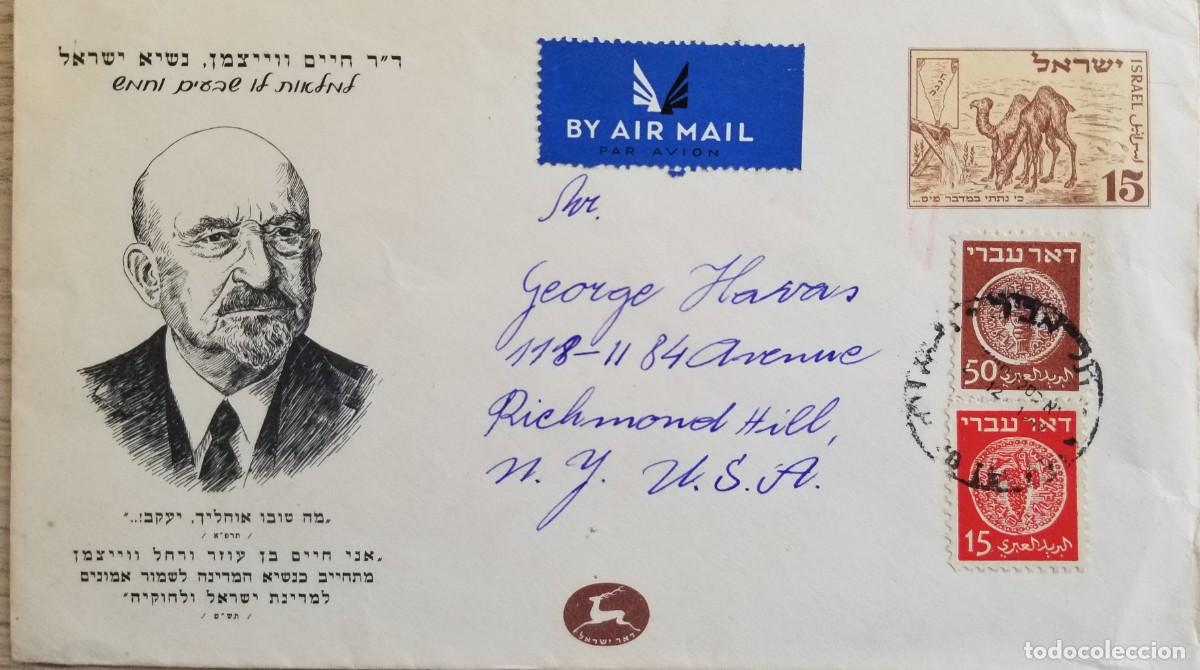 ד"ר חיים ווייצמן, נשיא ישראל
למלאות לו שבעים וחמש
"מה טובו אוהליך, יעקב!.."
/ תרפ"א /
"אני חיים בן עוזר ורחל ווייצמן
מתחייב כנשיא המדינה לשמור אמונים
למדינת ישראל ולחוקיה"
/ תש"ט /
BY AIR MAIL
PAR AVION
Mr.
George Havas
118-11 84 Avenue
Richmond Hill,
N. Y. U.S.A.
ישראל
ISRAEL
اسرائيل
הנגב
15
כי נתתי במדבר מים...
דאר עברי
50 البريد العبري
דאר עברי
15 البريد العبري
דאר ישראל
todocoleccion